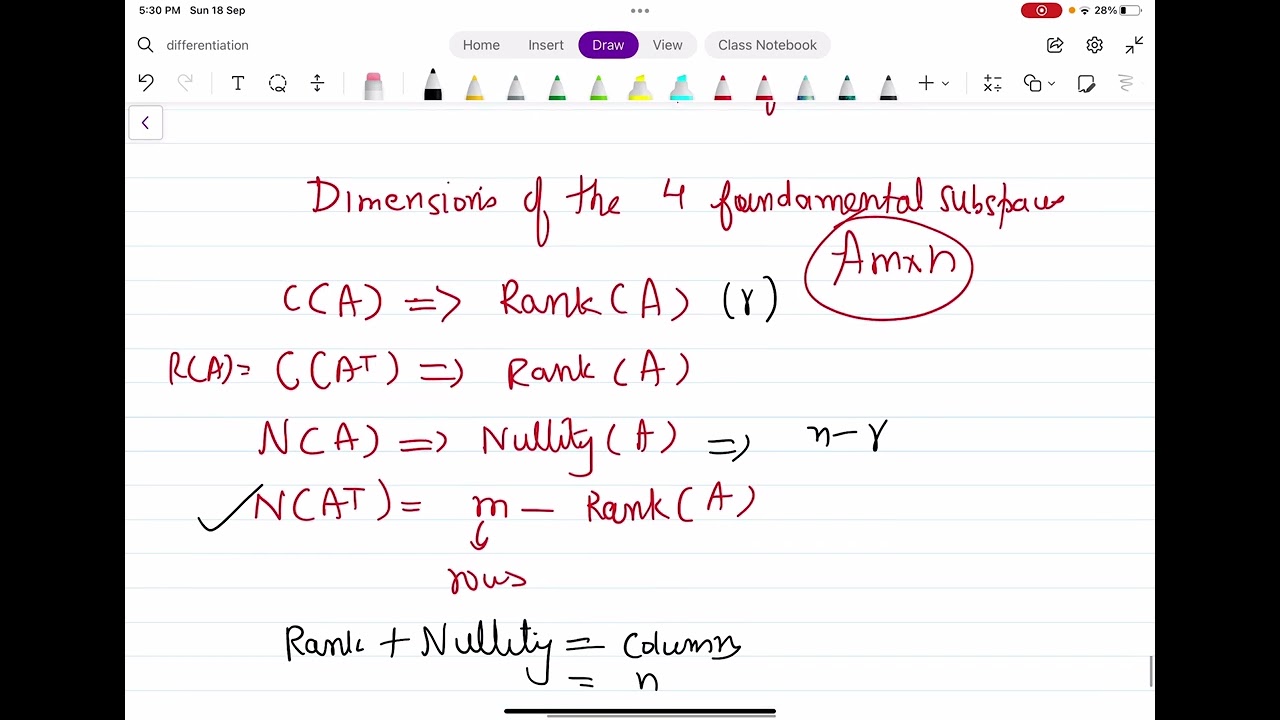 5:30 PM Sun 18 Sep
28%
differentiation
Home Insert Draw View Class Notebook
Dimensions of the 4 fundamental subspaces
Am×n
C(A) => Rank(A) (r)
R(A)= C(AT) => Rank(A)
N(A) => Nullity(A) => n-r
N(AT) = m - Rank(A)
rows
Rank + Nullity = columns
= n